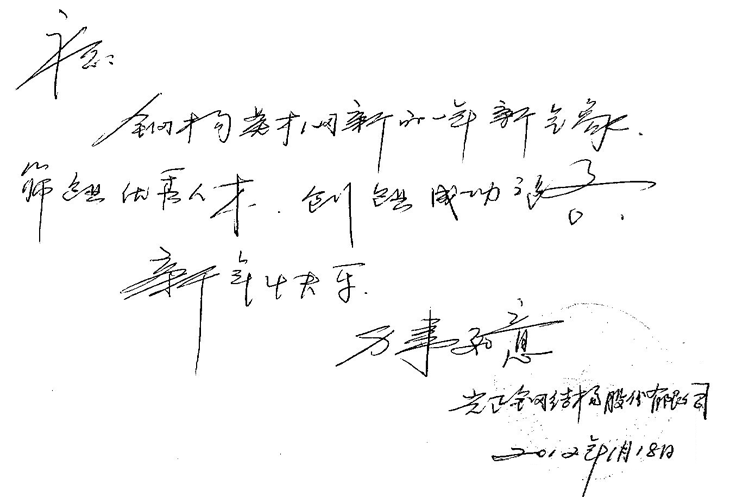 祝愿:
钢构英才网新的一年新气象.
筛选优秀人才.创造成功
新年快乐.
万事如意
光正钢结构股份有限公司
2012年1月18日